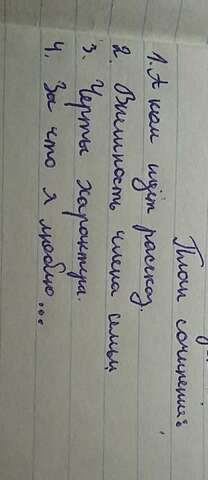 План сочинения:
1. О ком идёт рассказ.
2. Внешность члена семьи
3. Черты характера.
4. За что я люблю...